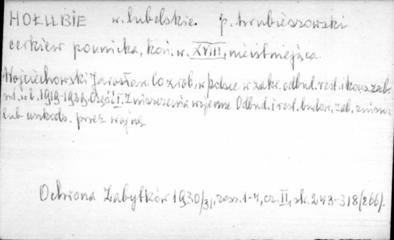 HOŁUBIE w. lubelskie. p. hrubieszowski
cerkiew pounicka, koń. w. XVIII, nieistniejąca
Wojciechowski Jarosław. Co zrob. w Polsce w zakr. odbud. rest. i kons. zab.
od r. 1919-1939. Część I. Zniszczenia wojenne Odbud. i rest. budow. zab. zniszcz.
lub uszkodz. przez wojnę
Ochrona Zabytków 1930/31, zesz. 1-4, cz. II, sk. 249-318 (266).